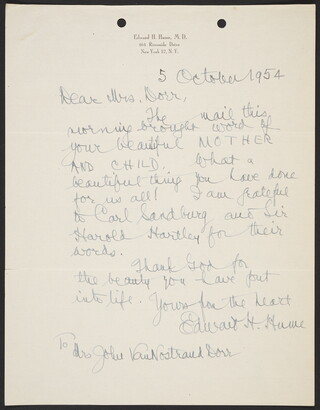 Edward H. Hume, M.D.
Riverside Drive
New York 27, N.Y.
5 October 1954
Dear Mrs. Dorr,
The mail this
morning brought word of
your beautiful MOTHER
AND CHILD. What a
beautiful thing you have done
for us all! I am grateful
to Carl Sandburg and Sir
Harold Hartley for their
words.
Thank God for
the beauty you have put
into life. Yours from the heart
Edward H. Hume
To Mrs John VanNostrand Dorr